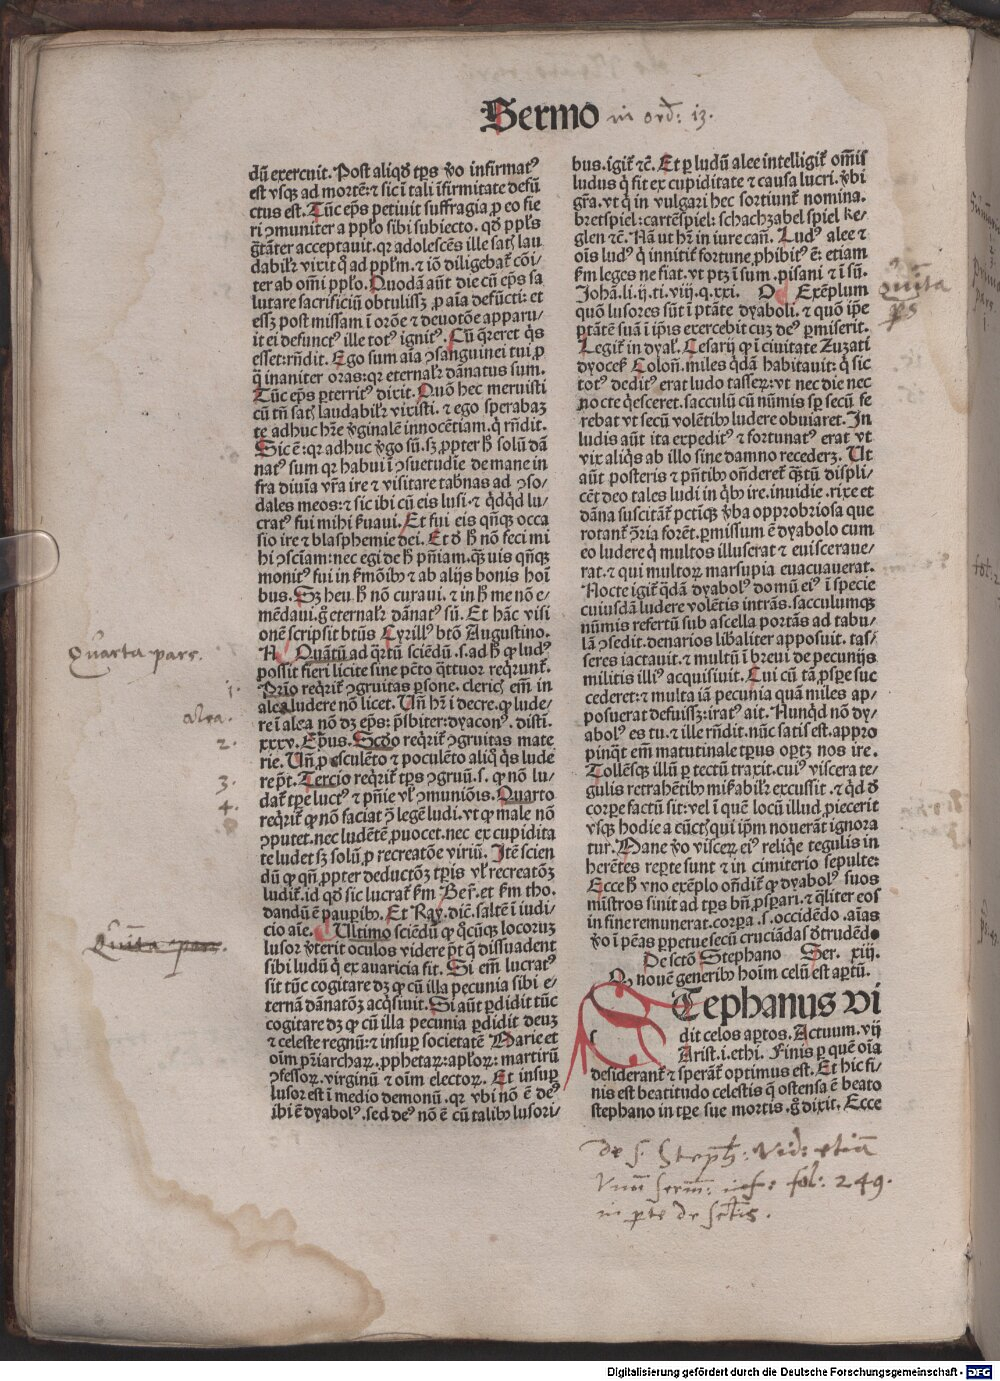 Sermo in ord: 13.
dũ exercuit. Post aliqđ tꝑs ṽo infirmatꝰ
est vsqꝫ ad mortẽ: ⁊ sic ĩ tali ĩfirmitate defũ
ctus est. Tũc ep̃s petiuit suffragia ꝓ eo fie
ri ꝯmuniter a pp̃lo sibi subiecto. qđ pp̃ls
g̃tãter acceptauit. qꝛ adolescẽs ille satꝭ lau
dabilr̃ vixit q̃ ad pp̃lm̃. ⁊ iõ diligebat̃ cõi/
ter ab om̃i pp̃lo. Quodã aũt die cũ ep̃s sa
lutare sacrificiũ obtulissꝫ ꝓ aĩa defũcti: et
essꝫ post missam ĩ orõe ⁊ deuotõe apparu/
it ei defunctꝰ ille totꝰ ignitꝰ. Cũ q̃reret q̃s
esset: rñdit. Ego sum aĩa ꝯsanguinei tui ꝓ
q̃ inaniter oras: qꝛ eternalr̃ dãnatus sum.
Tũc ep̃s ꝑterritꝰ dixit. Quõ hec meruisti
cũ tñ satꝭ laudabilr̃ vixisti. ⁊ ego sperabaꝫ
te adhuc hr̃e ṽginalẽ innocẽtiam. q̃ rñdit.
Sic ẽ: qꝛ adhuc ṽgo sũ. sꝫ ꝓpter h̃ solũ dã
natꝰ sum qꝛ habui ĩ ꝯsuetudĩe de mane in
fra diuĩa vr̃a ire ⁊ visitare tabñas ad ꝯso/
dales meos: ⁊ sic ibi cũ eis lusi. ⁊ q̃dq̃d lu/
cratꝰ fui mihi ẜuaui. Et fui eis qñqꝫ occa
sio ire ⁊ blasphemie dei. Et đ h̃ nõ feci mi
hi ꝯsciam: nec egi de h̃ pñiam. q̃uis qñqꝫ
monitꝰ fui in ẜmõibꝰ ⁊ ab alijs bonis hoĩ
bus. Sꝫ heu h̃ nõ curaui. ⁊ in h̃ me nõ e/
mẽdaui. g̃ eternalr̃ dãnatꝰ sũ. Et hãc visi
onẽ scripsit btũs Cyrillꝰ btõ Augustino.
Quarta pars.
N Quãtũ ad q̃rtũ sciẽdũ. s. ad h̃ ꝙ ludꝰ
possit fieri licite sine pctõ q̃ttuor reqrũnt̃.
1.
Prĩo reqrit̃ ꝯgruitas ꝑsone. clericꝭ em̃ in
alea ludere nõ licet. Uñ hr̃ ĩ decre. ꝙ lude/
alea.
re ĩ alea nõ dꝫ ep̃s: p̃sbiter: dyaconꝰ. disti.
2.
xxxv. Ep̃us. Scđo reqrit̃ ꝯgruitas mate
rie. Uñ ꝓ esculẽto ⁊ poculẽto aliq̃ q̃s lude
3.
re pt̃. Tercio reqrit̃ tꝑs ꝯgruũ. s. ꝙ nõ lu/
dat̃ tꝑe luctꝰ ⁊ pñie vl̃ ꝯmuniõis. Quarto
4.
reqrit̃ ꝙ nõ faciat ꝯ̃ legẽ ludi. vt ꝙ male nõ
ꝯputet. nec ludẽtẽ ꝓuocet. nec ex cupidita
te ludet sꝫ solũ ꝓ recreatõe viriũ. Itẽ scien
dũ ꝙ qñ ꝓpter deductõꝫ tꝑis vl̃ recreatõꝫ
ludit̃. id qđ sic lucrat̃ ẜm Ber̃. et ẜm tho.
dandũ ẽ pauꝑibꝰ. Et Ray. dic̃. saltẽ ĩ iudi/
cio aĩe. Ultimo sciẽdũ ꝙ q̃cũqꝫ locoruꝫ
Quinta pars.
lusor ṽterit oculos videre pt̃ q̃ dissuadent
sibi ludũ q̃ ex auaricia fit. Si em̃ lucratꝰ
sit tũc cogitare dꝫ ꝙ cũ illa pecunia sibi e/
ternã dãnatõꝫ acq̃siuit. Si aũt ꝑdidit tũc
cogitare dꝫ ꝙ cũ illa pecunia ꝑdidit deuꝫ
⁊ celeste regnũ: ⁊ insuꝑ societatẽ Marie et
oĩm pr̃iarchaꝝ. ꝓphetaꝝ: ap̃loꝝ: martirũ
ꝯfessoꝝ. virginũ ⁊ oĩm electoꝝ. Et insuꝑ
lusor est ĩ medio demonũ. qꝛ vbi nõ ẽ deꝰ
ibi ẽ dyabolꝰ. sed deꝰ nõ ẽ cũ talibꝰ lusori/
bus. igit̃ ⁊c̃. Et ꝑ ludũ alee intelligit̃ om̃is
ludus q̃ fit ex cupiditate ⁊ causa lucri. ṽbi
gr̃a. vt q̃ in vulgari hec sortiunt̃ nomina.
bretspiel: cartẽspiel: schachzabel spiel ke/
glen ⁊c̃. Nã ut hr̃ in iure cañ. Ludꝰ alee ⁊
oĩs ludꝰ q̃ innitit̃ fortune ꝓhibitꝰ ẽ: etiam
ẜm leges ne fiat. vt ptꝫ ĩ sum. pisani ⁊ ĩ sũ.
Johã. li. ij. ti. viij. q. xxi. O Exẽplum
Quinta
ps
quõ lusores sũt ĩ ptãte dyaboli. ⁊ quõ ip̃e
ptãtẽ suã ĩ ip̃is exercebit cuꝫ deꝰ ꝑmiserit.
Legit̃ in dyal̃. Cesarij ꝙ ĩ ciuitate Zuzati
dyoceẜ Coloñ. miles q̃dã habitauit: q̃ sic
totꝰ deditꝰ erat ludo tasseꝝ: vt nec die nec
nocte q̃esceret. sacculũ cũ nũmis sꝑ secũ fe
rebat vt secũ volẽtibꝰ ludere obuiaret. In
ludis aũt ita expeditꝰ ⁊ fortunatꝰ erat vt
vix aliq̃s ab illo sine damno recederꝫ. Ut
aũt posteris ⁊ pñtibꝰ oñderet̃ q̃tũ displi/
cẽt deo tales ludi in q̃bꝰ ire. inuidie. rixe et
dãna suscitãt̃ pctĩqꝫ ṽba opprobriosa que
rotant̃ ꝯ̃ria forẽt. ꝑmissum ẽ dyabolo cum
eo ludere q̃ multos illuserat ⁊ euiscerauе/
rat. ⁊ qui multoꝝ marsupia euacuauerat.
Nocte igit̃ q̃dã dyabolꝰ domũ eiꝰ ĩ specie
cuiusdã ludere volẽtis intrãs. sacculumqꝫ
nũmis refertũ sub ascella portãs ad tabu/
lã ꝯsedit. denarios libãliter apposuit. tas/
seres iactauit. ⁊ multũ ĩ breui de pecunijs
militis illiꝰ acquisiuit. Cui cũ tã ꝓsꝑe suc
cederet: ⁊ multa iã pecunia quã miles ap/
posuerat defuissꝫ: iratꝰ ait. Nunq̃d nõ dy/
abolꝰ es tu. ⁊ ille rñdit. nũc satis est. appro
pinqt̃ em̃ matutinale tꝑus oportꝫ nos ire.
Tollẽsqꝫ illũ ꝑ tectũ traxit. cuiꝰ viscera te/
gulis retrahẽtibꝰ mirabilr̃ excussit. ⁊ q̃d đ
corꝑe factũ sit: vel ĩ quẽ locũ illud ꝓiecerit
vsqꝫ hodie a cũctꝭ qui ip̃m nouerãt ignora
tur. Mane ṽo visceꝝ eiꝰ reliq̃e tegulis in
herẽtes reꝑte sunt ⁊ in cimiterio sepulte:
Ecce h̃ vno exẽplo oñdit̃ ꝙ dyabolꝰ suos
mĩstros sinit ad tꝑs bñ ꝓsꝑari. ⁊ q̃liter eos
in fine remunerat. corꝑa. s. occidẽdo. aĩas
ṽo ĩ pẽas ꝑpetue secũ cruciãdas đtrudẽdo
De sctõ Stephano Ser. xiij.
Q nouẽ generibꝰ hoĩm celũ est aꝑtũ.
STephanus vi
dit celos aꝑtos. Actuum. vij
Arist. i. ethi. Finis ꝑ quẽ oĩa
desiderant̃ ⁊ sperãt̃ optimus est. Et hic fi/
nis est beatitudo celestis q̃ ostensa ẽ beato
stephano in tꝑe sue mortis. g̃ dixit. Ecce
de s. Steph: Vid: etiã
vnũ serm̃: inf: fol: 249.
in parte de Sctĩs.